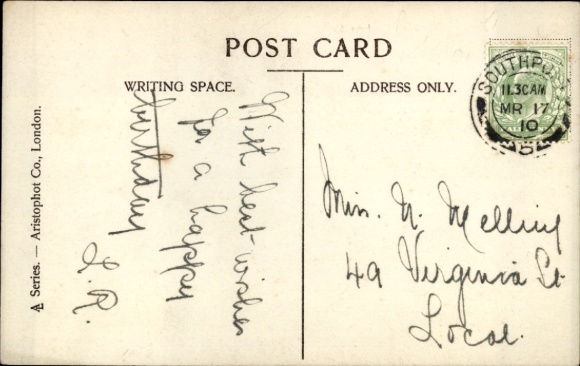 POST CARD
WRITING SPACE.
ADDRESS ONLY.
With best wishes
for a happy
birthday
S.R.
Miss. N. Melling
49 Virginia St
Local.
SOUTHPO
11.30AM
MR 17
10
A Series. — Aristophot Co., London.